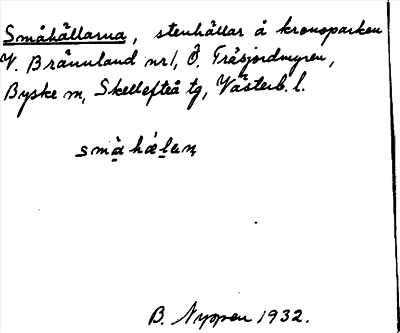 Småhällarna, stenhällar å kronoparken
V. Brännland nr1, Ö. Tråsjordmyren,
Byske m, Skellefteå tg, Västerb. l.
små̀ hǽlaṇ
B. Nyppen 1932.